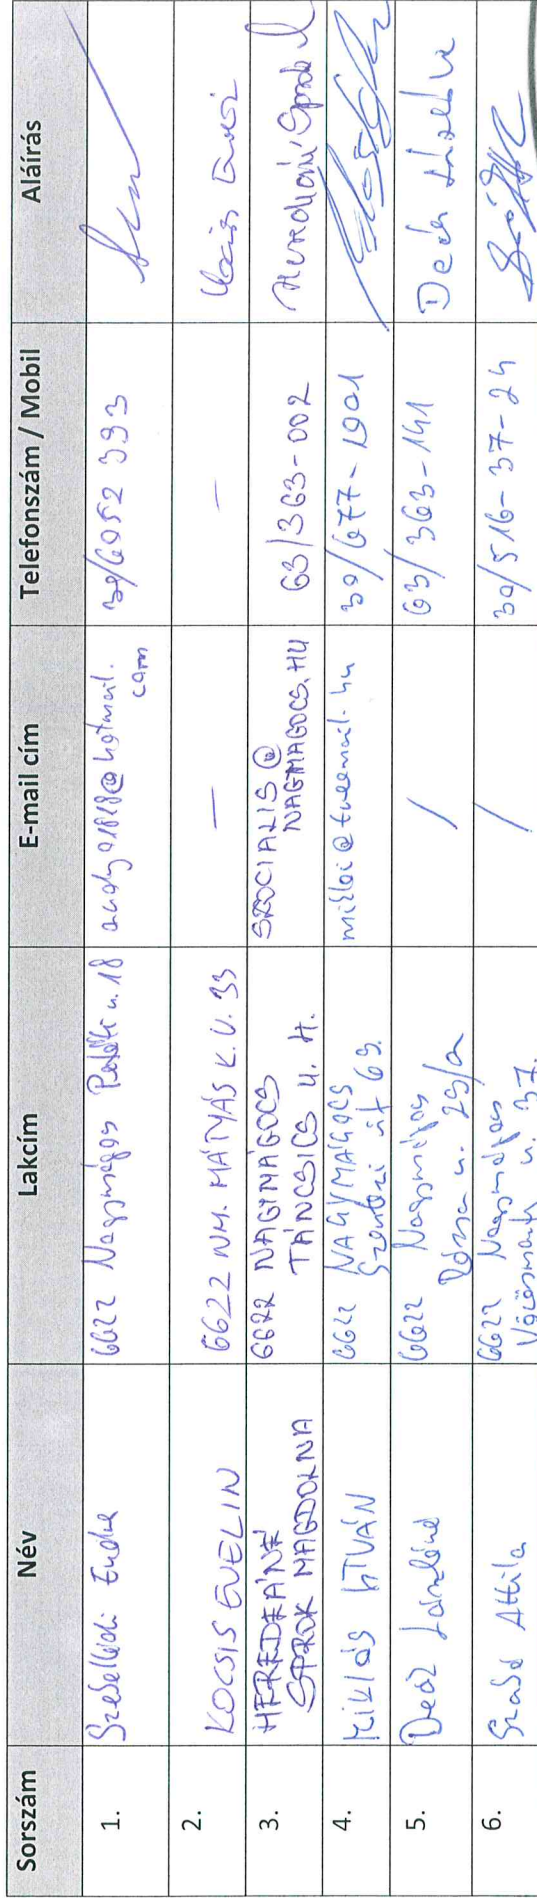 Sorszám Név Lakcím E-mail cím Telefonszám / Mobil Aláírás
1. Endre 6622 Nagymágocs Petőfi u. 18 andy01828@hotmail.
com 30/6052 393
2. KOCSIS EVELIN 6622 NM. MÁTYÁS K. U. 33 — — Kocsis Evelin
3. HEREDEÁINÉ
SPROK MAGDOLNA 6622 NAGYMÁGOCS
TÁNCSICS U. 4. SZOCIALIS@
NAGMAGOCS.HU 63/363-002
4. MIKLÓS ISTVÁN 6622 NAGYMÁGOCS
Szentesi út 69. 30/677-1901
5. Deák Lászlóné 6622 Nagymágocs
Dózsa u. 29/a / 63/363-141 Deák Lászlóné
6. Szabó Attila 6622 Nagymágocs
Vörösmarty u. 37. / 30/516-37-24